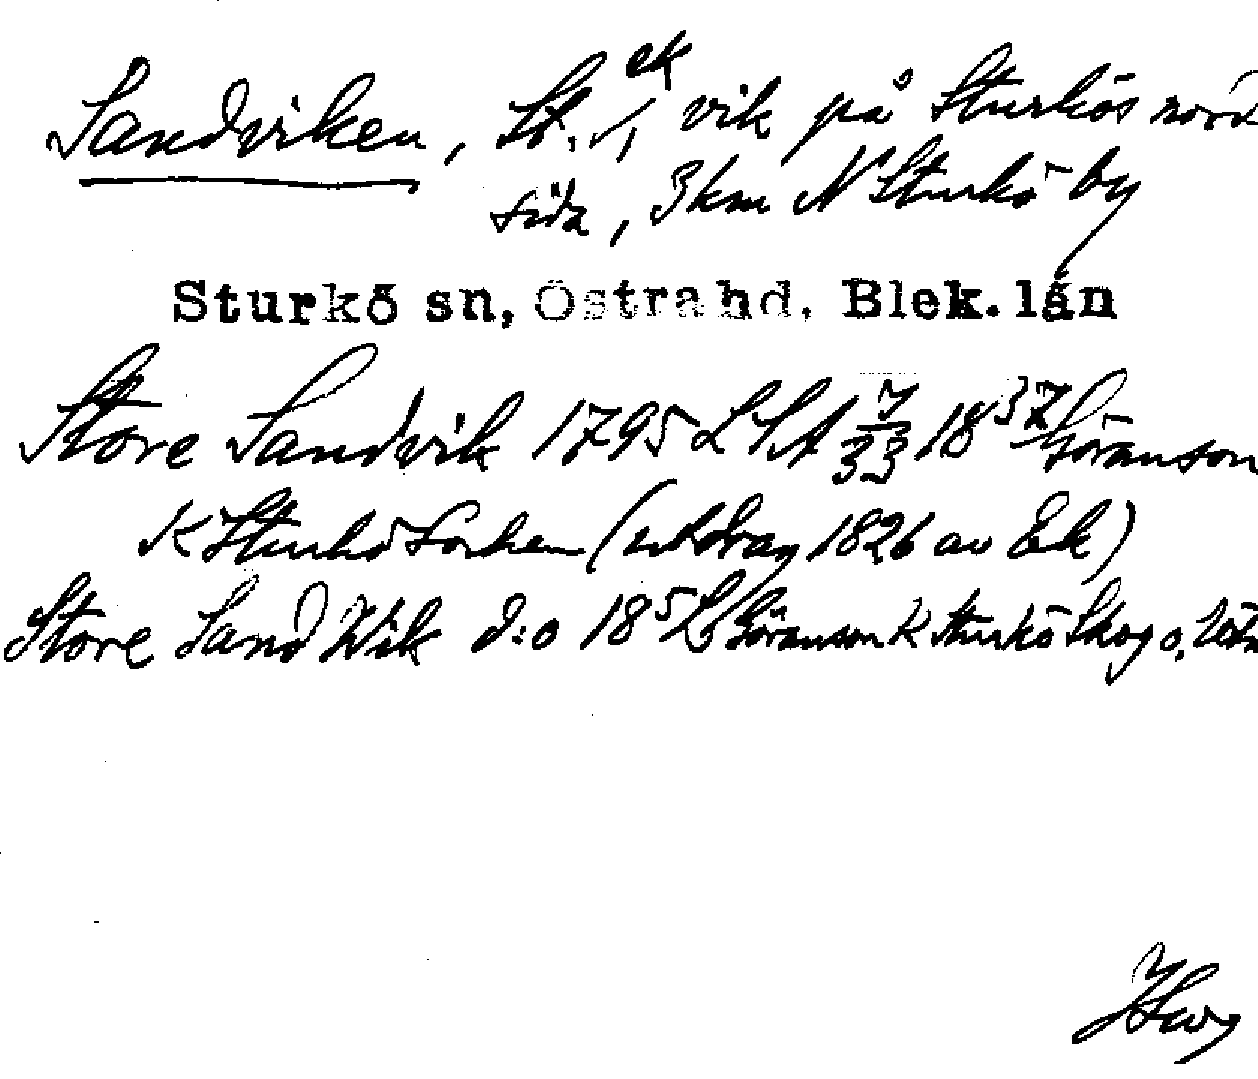 ek
Sandviken, St. ✓, vik på Sturkös nord
sida, 3 km N Sturkö by
Sturkö sn, Östra hd, Blek. län
Store Sandvik 1795 LSA 7/33 18 37 Göranson
K Sturkö Socken (utdrag 1826 av Ek)
Store Sand Wik d:o 18 Göranson K Sturkö Skog o.